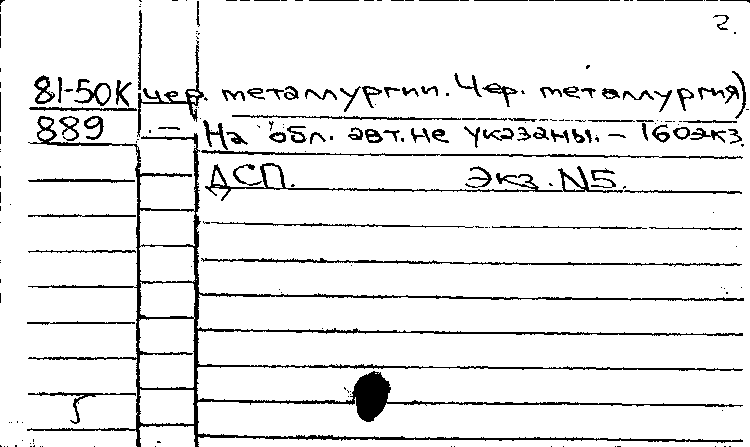 2.
81-50К чер. металлургии. Чер. металлургия)
889 .— На обл. авт. не указаны. – 160экз.
ДСП. Экз. N5.
5